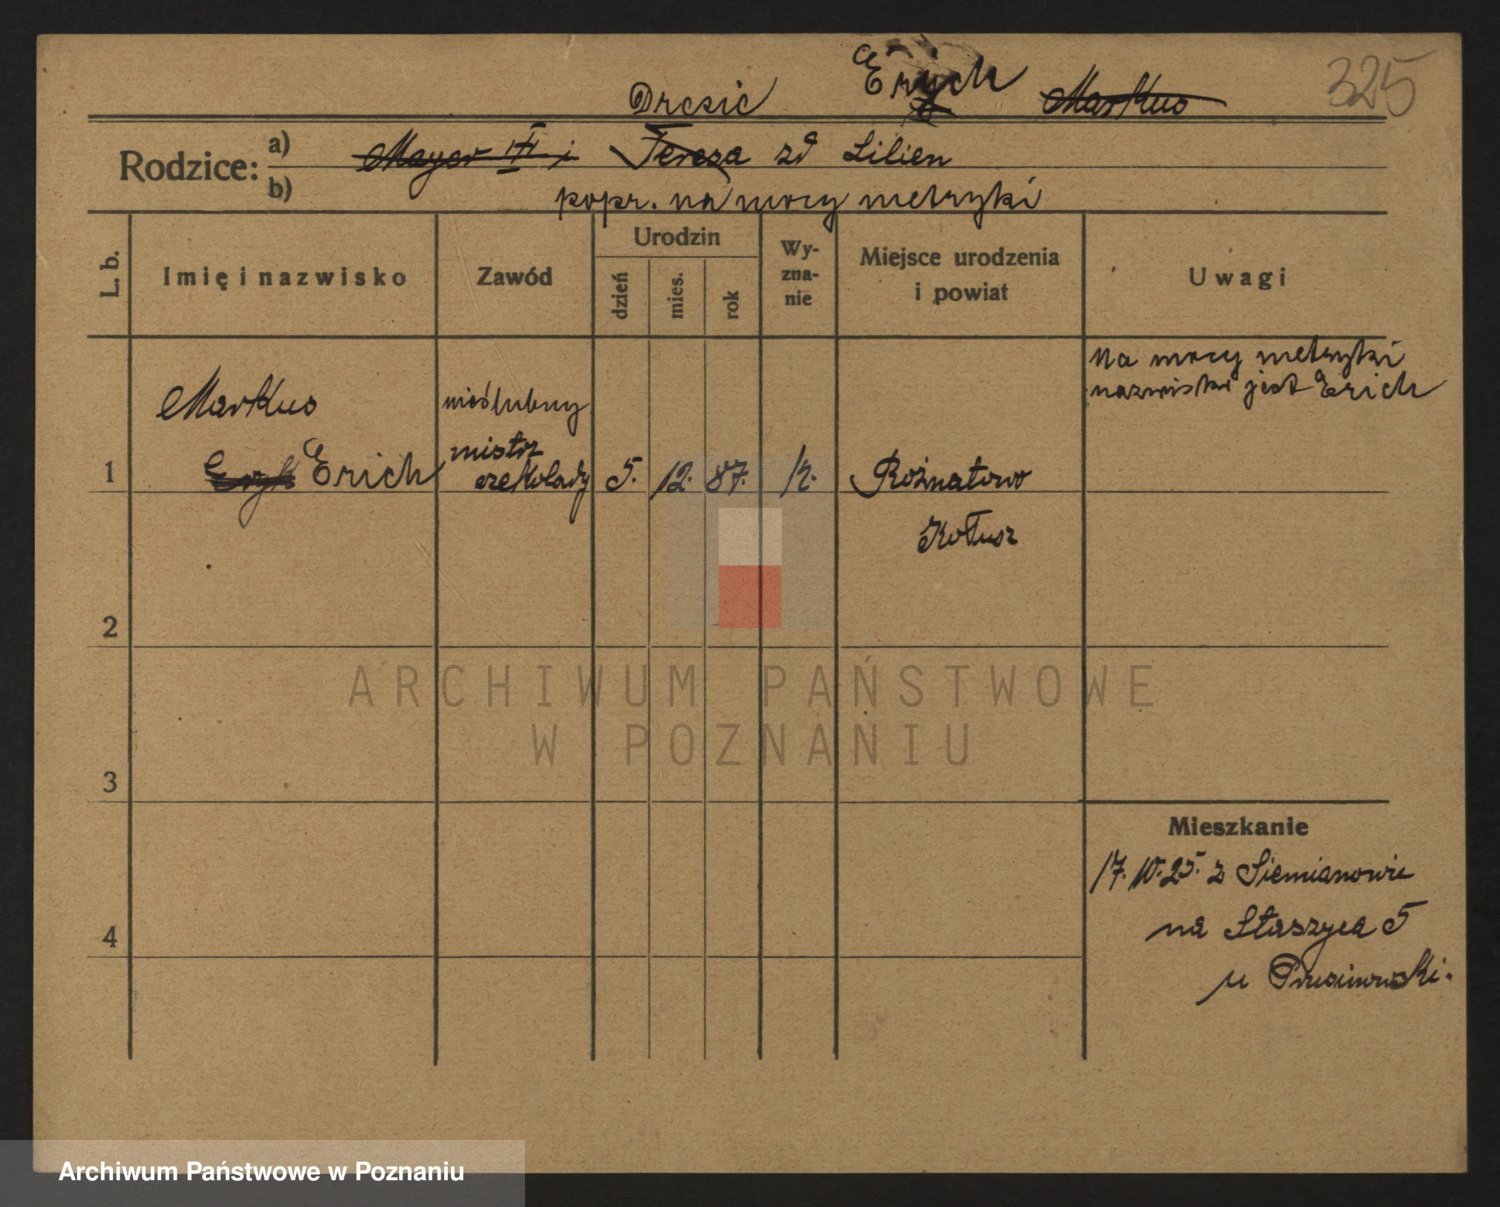 Erych
325
Dresie Markus
Rodzice:
a)
Mayer III i Tereza zd Lilien
b)
popr. na mocy metryki
L. b.
Imię i nazwisko
Zawód
Urodzin
dzień
mies.
rok
Wy-
zna-
nie
Miejsce urodzenia
i powiat
Uwagi
na mocy metryki
nazwisko jest Erich
Markus
nieślubny
mistrz
1
Eryk Erich
czekolady
5.
12.
87.
Rożnatowo
Kołusz
2
ARCHIWUM PAŃSTWOWE
W POZNANIU
3
Mieszkanie
17.10.25. z Siemianowic
4
na Staszyca 5
u
Archiwum Państwowe w Poznaniu